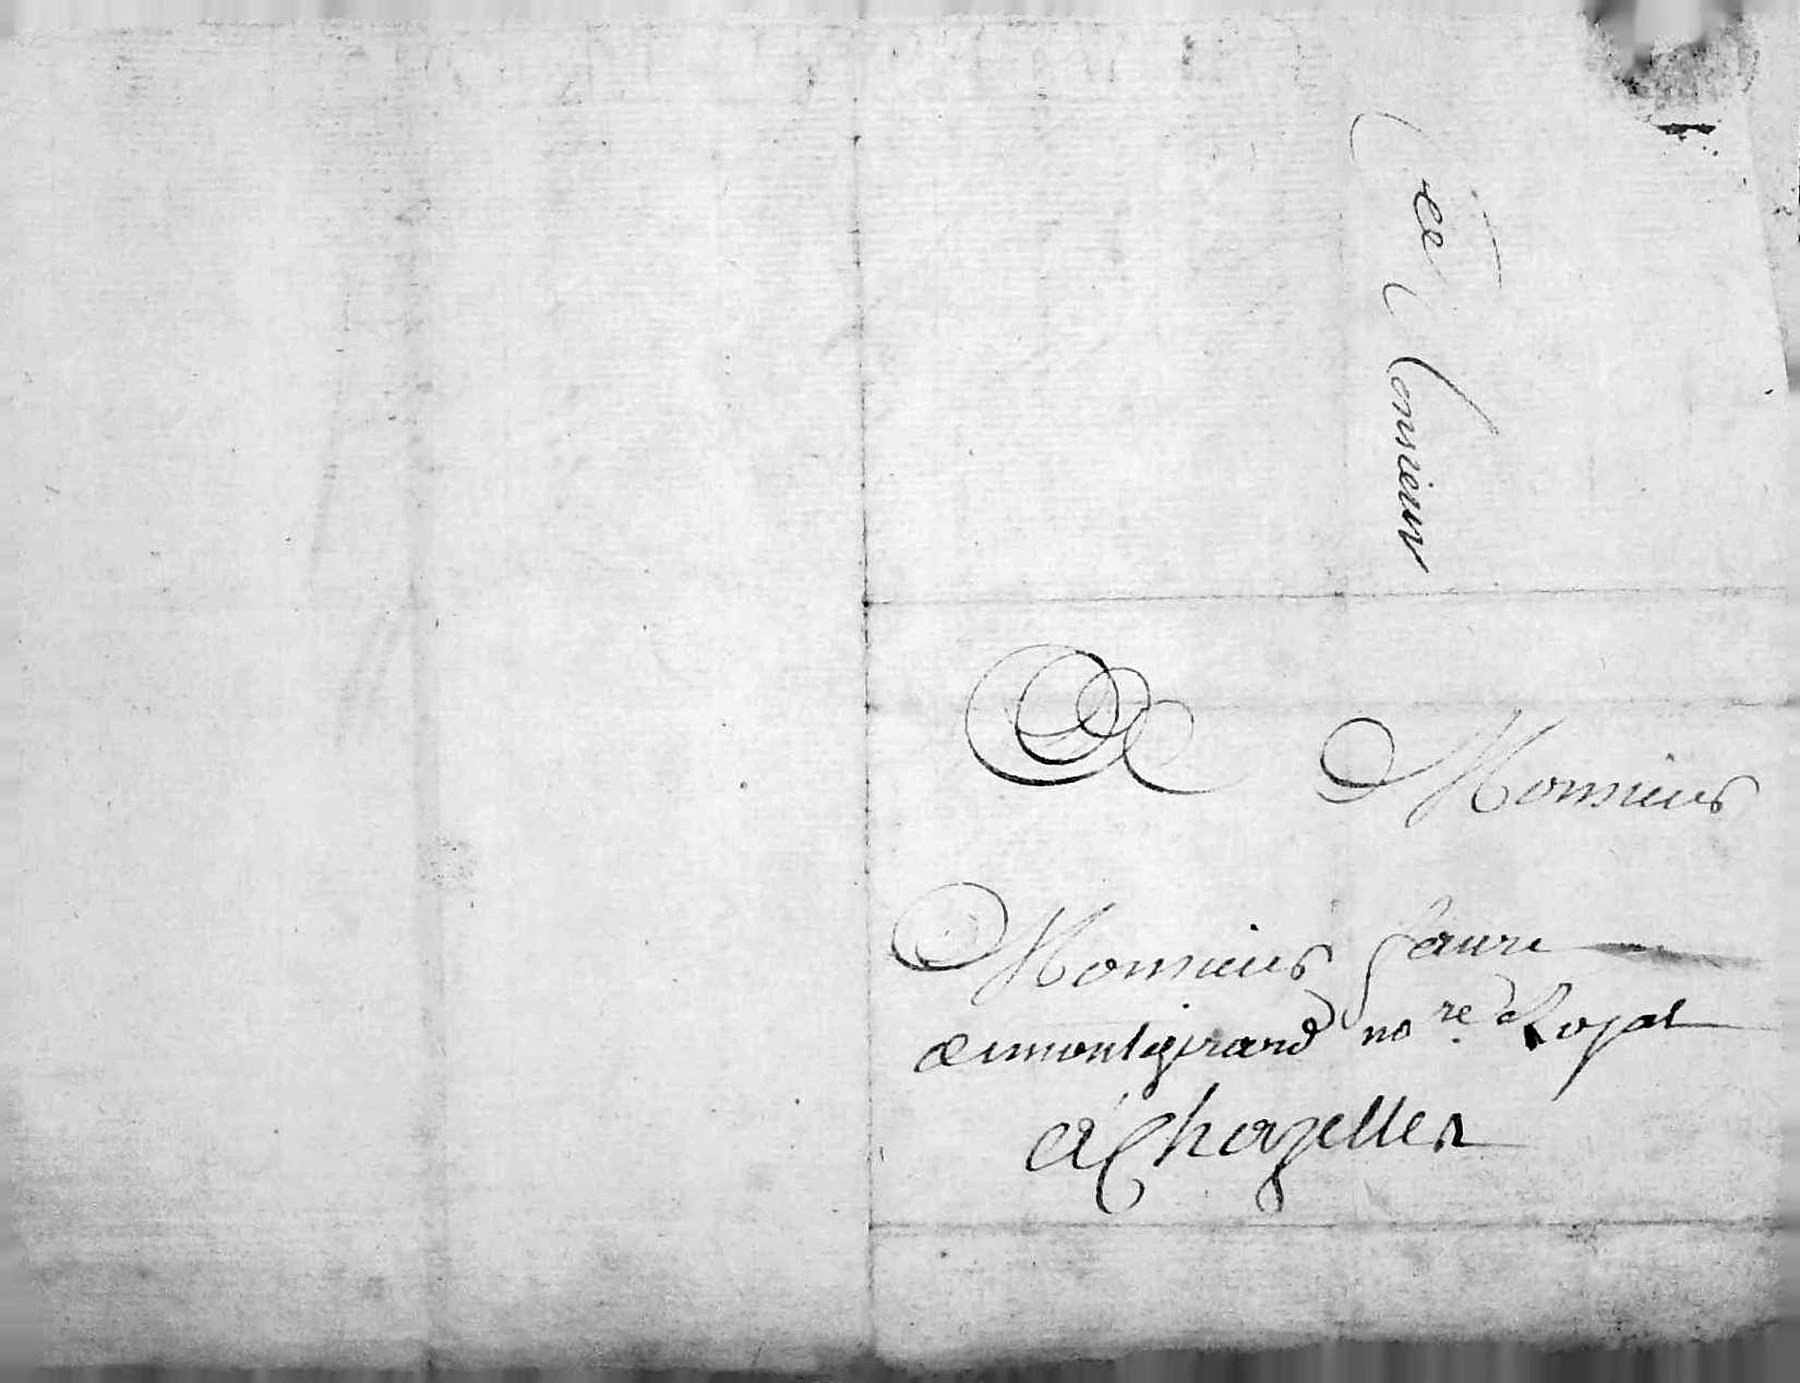 Monsieur
Monsieur faure
demontgirard no.re Royal
a Chazelles